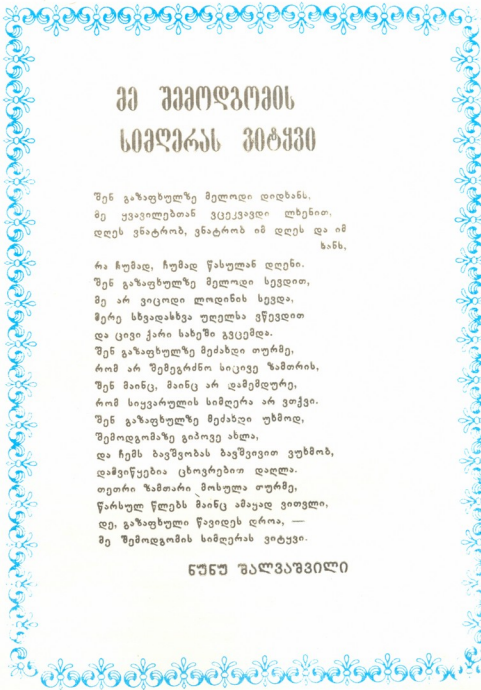 მე შემოდგომის
სიმღერას ვიტყვი
შენ გაზაფხულზე მელოდი დიდხანს,
მე ყვავილებთან ვცეკვავდი ლხენით,
დღეს ვნატრობ, ვნატრობ იმ დღეს და იმ
ხანს,
რა ჩუმად, ჩუმად წასულან დღენი.
შენ გაზაფხულზე მელოდი სევდით,
მე არ ვიცოდი ლოდინის სევდა,
მერე სხვადასხვა უღელსა ვწევდით
და ცივი ქარი სახეში გვცემდა.
შენ გაზაფხულზე მეძახდი თურმე,
რომ არ შემეგრძნო სიცივე ზამთრის,
შენ მაინც, მაინც არ დამემდურე,
რომ სიყვარულის სიმღერა არ ვთქვი.
შენ გაზაფხულზე მეძახდი უხმოდ,
შემოდგომაზე გიპოვე ახლა,
და ჩემს ბავშვობას ბავშვივით ვუხმობ,
დამვიწყებია ცხოვრებით დაღლა.
თეთრი ზამთარი მოსულა თურმე,
წარსულ წლებს მაინც ამაყად ვითვლი,
დე, გაზაფხული წავიდეს დროა, —
მე შემოდგომის სიმღერას ვიტყვი.
ნუნუ შალვაშვილი